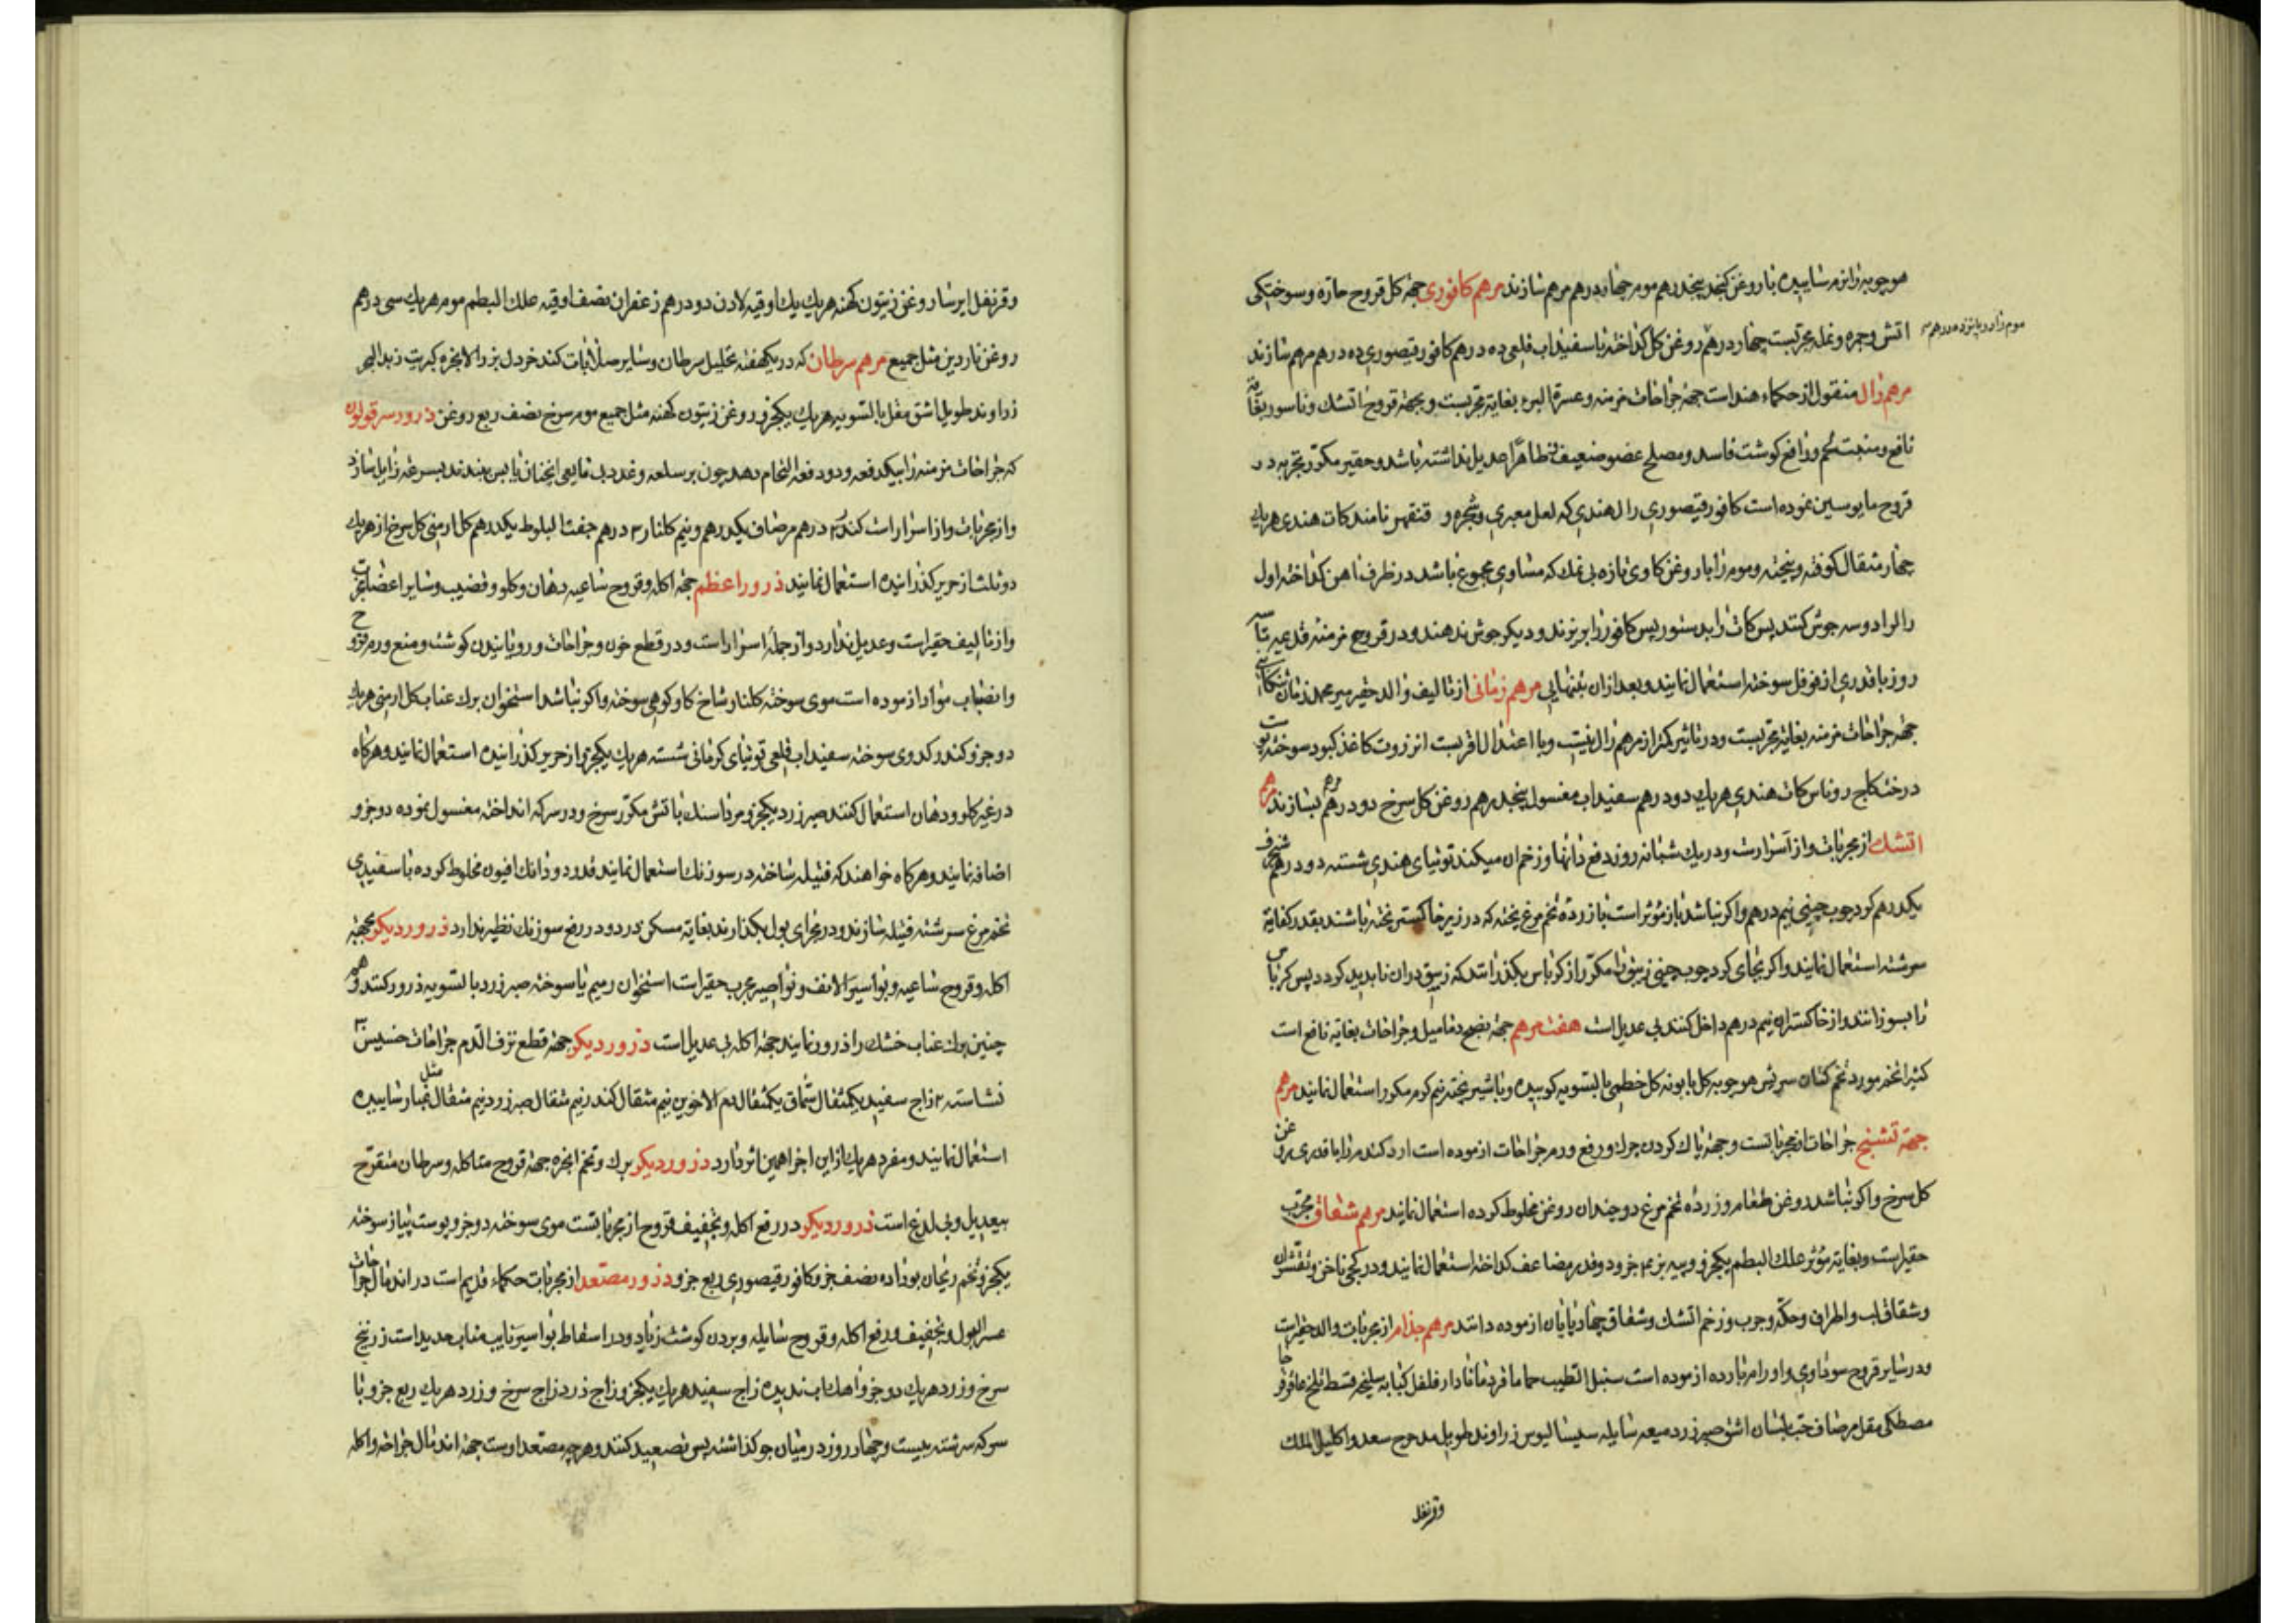 هوجوبه را نرم ساییده با روغن کنجد پنجدرهم موم چهاردرهم مرهم سازند مرهم کافوری جهة کل قروح حاره و سوختکی
اتش و جمره و نمله مجربست چهار درهم روغن کل کداخته با سفیداب قلعی ده درهم کافور قیصوری ده درهم مرهم سازند
موم زا دو پانزده درهم
مرهم رال منقول از حکماء هند است جهة جراحات مزمنه و عسرة البرء بغایة مجربست و بجهة قروح اتشک و ناسور بغایة
نافع و منبت لحم و رافع کوشت فاسد و مصلح عضو ضعیف ظاهرا عدیل نداشته باشد و حقیر مکرر تجربه در
قروح مایوسین نموده است کافور قیصوری رال هندی که لعل معبری و شجره و قنقهر نامند کات هندی هریک
چهار مثقال کوفته و بیخته و موم را با روغن کاوی تازه بی نمک که مساوی مجموع باشد در ظرف اهن کداخته اول
رال را دو سه جوش کنند پس کات را بدستور پس کافور را بریزند و دیکر جوش ندهند و در قروح مزمنه قدیمه تا سه
روز با قدری از فوفل سوخته استعمال نمایند و بعد ازان بتنهایی مرهم زمانی از تالیف والد حقیر میر محمد زمان تنکابنی
جهة جراحات مزمنه بغایة مجربست و در تاثیر کمتر از مرهم رال نیست و با اعتدال اقربست انزروت کاغذ کبود سوخته پوست
درخت کاج روناس کات هندی هریک دو درهم سفیداب مغسول پنجدرهم روغن کل سرخ دو درهم بسازند مرهم
اتشک از مجربات و از اسرارست و در یک شبانه روز دفع دانها و زخم ان میکند توتیای هندی شسته دو درهم شنجرف
یکدرهم کرد چوب چینی نیم درهم و اکر نباشد باز مؤثر است با زرده تخم مرغ پخته که در زیر خاکستر پخته باشند بقدر کفایة
سرشته استعمال نمایند و اکر بجای کرد چوب چینی زیبق را مکرر از کرباس بکذرانند که زیبق دران ناپدید کردد پس کرباس
را بسوزانند و از خاکستر ان نیم درهم داخل کنند بی عدیل است هفت مرهم جهة نضج دمامیل و جراحات بغایة نافع است
کتیرا تخم مورد تخم کتان سریش هوجوبه کل بابونه کل خطمی بالسویه کوبیده و با شیر پخته نیم کرم مکرر استعمال نمایند مرهم
جهة تشنج جراحات از مجرباتست و جهة پاک کردن چرک و رفع ورم جراحات ازموده است ارد کندم را با قدری روغن
کل سرخ و اکر نباشد روغن طعام و زرده تخم مرغ دو چندان روغن مخلوط کرده استعمال نمایند مرهم شقاق مجرب
حقیر است و بغایة مؤثر علک البطم یکجزو و پیه بز دو جزو و دو قدر مضاعف کداخته استعمال نمایند و در کجی ناخن و تقشر ان
و شقاق لب و اطراف و حکه و جرب و زخم اتشک و شقاق چهارپایان ازموده دانند مرهم جذام از مجربات والد حقیر است
و در سایر قروح سوداوی و اورام بارده ازموده است سنبل الطیب حماما قردمانا دارفلفل کبابه سلیخه قسط تلخ عاقرقرحا
مصطکی مقل مرصاف حب بلسان اشق صبر زرد میعه سایله سیسالیوس زراوند طویل مدحرج سعد و اکلیل الملک
قرنفل
و قرنفل ایرسا روغن زیتون کهنه هریک یک اوقیه لادن دو درهم زعفران نصف اوقیه علک البطم موم هریک سی درهم
روغن ناردین مثل جمیع مرهم سرطان که در یکهفته تحلیل سرطان و سایر صلابات کند خردل بزر الانجره کبریت زبد البحر
زراوند طویل اشق مقل بالسویه هریک یکجزو روغن زیتون کهنه مثل جمیع موم سرخ نصف ربع روغن ذرور سرقولون
که جراحات مزمنه را بیکدفعه و دو دفعه التحام دهد چون بر سلعه و غدد بی مایعی انچنان یابس ببندند بسرعة زایل سازد
و از مجربات و از اسرار است کندر ۲ درهم مرصاف یکدرهم و نیم کلنار ۳ درهم جفت البلوط یکدرهم کل ارمنی کل سرخ از هریک
دو ثلث از حریر کذرانیده استعمال نمایند ذرور اعظم جهة اکله و قروح ساعیه دهان و کلو و قضیب و سایر اعضا مجربست
و از تالیف حقیر است و عدیل ندارد و از جمله اسرار است و در قطع خون و جراحات و رویانیدن کوشت و منع ورم قروح
و انصباب مواد ازموده است موی سوخته کلنار شاخ کاو کوهی سوخته و اکر نباشد استخوان برک عناب کل ارمنی هریک
دو جزو کندر کدوی سوخته سفیداب قلعی توتیای کرمانی شسته هریک یکجزو از حریر کذرانیده استعمال نمایند و هرکاه
در غیر کلو و دهان استعمال کنند صبر زرد یکجزو مرداسنک باتش مکرر سرخ و در سرکه انداخته مغسول نموده دو جزو
اضافه نمایند و هرکاه خواهند که فتیله ساخته در سوزنک استعمال نمایند قدر دو دانک افیون مخلوط کرده با سفیدی
تخم مرغ سرشته فتیله سازند و در مجرای بول بکذارند بغایة مسکن درد و در رفع سوزنک نظیر ندارد ذرور دیکر بجهة
اکله و قروح ساعیه و بواسیر الانف و نواصیر مجرب حقیر است استخوان رمیم یا سوخته صبر زرد بالسویه ذرور کنند و هم
چنین برک عناب خشک را ذرور نمایند جهة اکله بی عدیل است ذرور دیکر جهة قطع نزف الدم جراحات خسیس
نشاسته ۲ زاج سفید یکمثقال سماق یکمثقال دم الاخوین نیم مثقال کندر نیم مثقال صبر زرد نیم مثقال مثل غبار ساییده
استعمال نمایند و مفرد هریک ازاین اجزا همین اثر دارد ذرور دیکر برک و تخم انجره جهة قروح متاکله و سرطان متقرح
بیعدیل و بی لدغ است ذرور دیکر در رفع اکله و تجفیف قروح از مجرباتست موی سوخته دو جزو پوست پیاز سوخته
یکجزو تخم ریحان بوداده نصف جزو کافور قیصوری ربع جزو ذرور مصعد از مجربات حکماء قدیم است در اندمال جراحات
عسر البول و تجفیف و رفع اکله و قروح سایله و بردن کوشت زیاد و در اسقاط بواسیر نایب مناب حدید است زرنیخ
سرخ و زرد هریک دو جزو اهک اب ندیده زاج سفید هریک یکجزو زاج زرد زاج سرخ و زرد هریک ربع جزو با
سرکه سرشته بیست و چهار روز در میان جو کذاشته پس تصعید کنند و هرچه مصعد اوست جهة اندمال جراحة و اکله